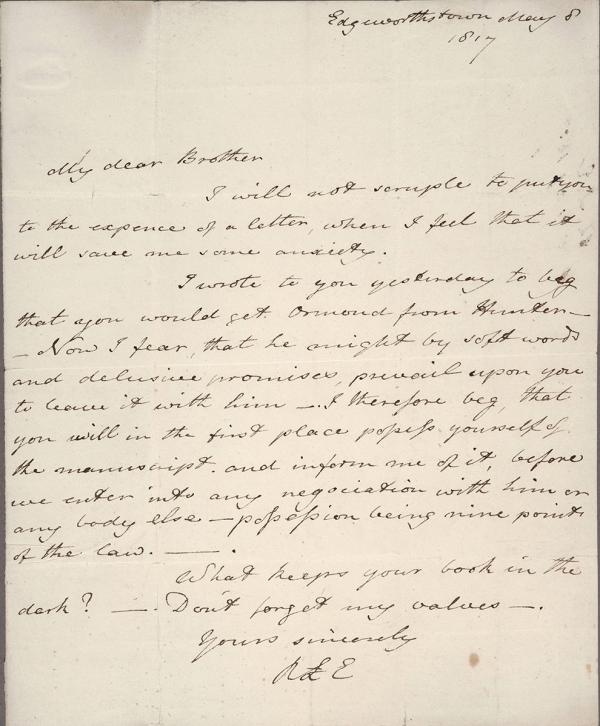 Edgworthstown May 8
1817
My dear Brother
I will not scruple to put you
to the expence of a letter, when I feel that it
will save me some anxiety.
I wrote to you yesterday to beg
that you would get Ormond from Hunter —
— Now I fear, that he might by soft words
and delusive promises, prevail upon you
to leave it with him —. I therefore beg, that
you will in the first place possess yourself of
the manuscript. and inform me of it, before
we enter into any negociation with him or
any body else — possession being nine points
of the law. — .
What keeps your book in the
dark? —. Don't forget my valves —.
Yours sincerely
RLE